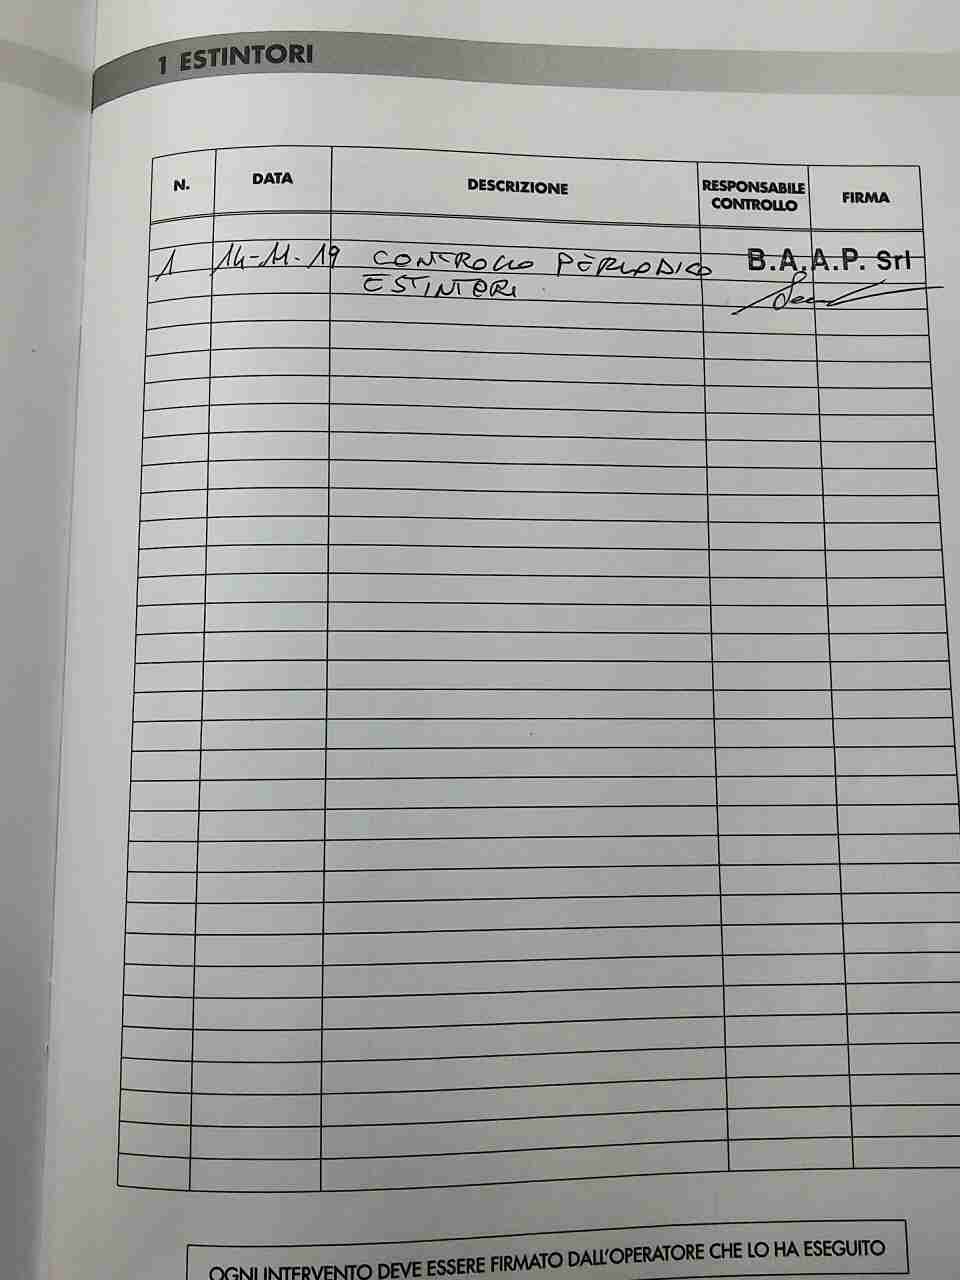 1 ESTINTORI
N. DATA DESCRIZIONE RESPONSABILE CONTROLLO FIRMA
1 14-11-19 CONTROLLO PERIODICO B.A.A.P. Srl
ESTINTORI
OGNI INTERVENTO DEVE ESSERE FIRMATO DALL'OPERATORE CHE LO HA ESEGUITO